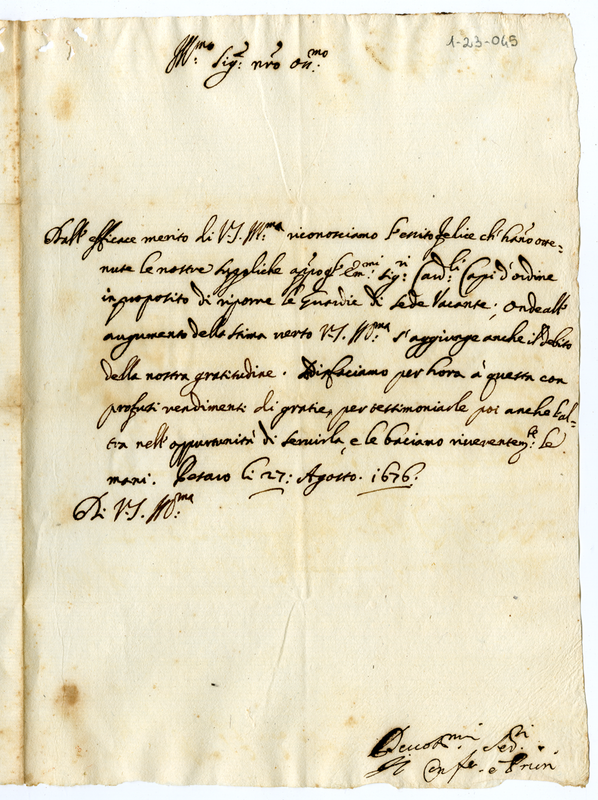 1-23-045
Ill:mo Sig:r nro oss:mo
Dall'efficace merito di V.S. Ill:ma riconosciamo l'esito felice ch'hano otte-
nute le nostre suppliche appo gl'Em:mi Sig:ri Card:li Capi d'ordine
in proposito di riporne le Guardie di Sede Vacante; Onde all'
augumento della stima verso V.S. Ill:ma s'aggiunge anche il debito
della nostra gratitudine. Disfaciamo per hora à questa con
profusi rendimenti di gratie, per testimoniarle poi anche l'al-
tra nell'opportunità di servirla, e le baciamo riverentem:te le
mani. Pesaro li 27: Agosto. 1676.
Di V.S. Ill:ma
Devot:mi Ser:ri
Il Confre. e Priori